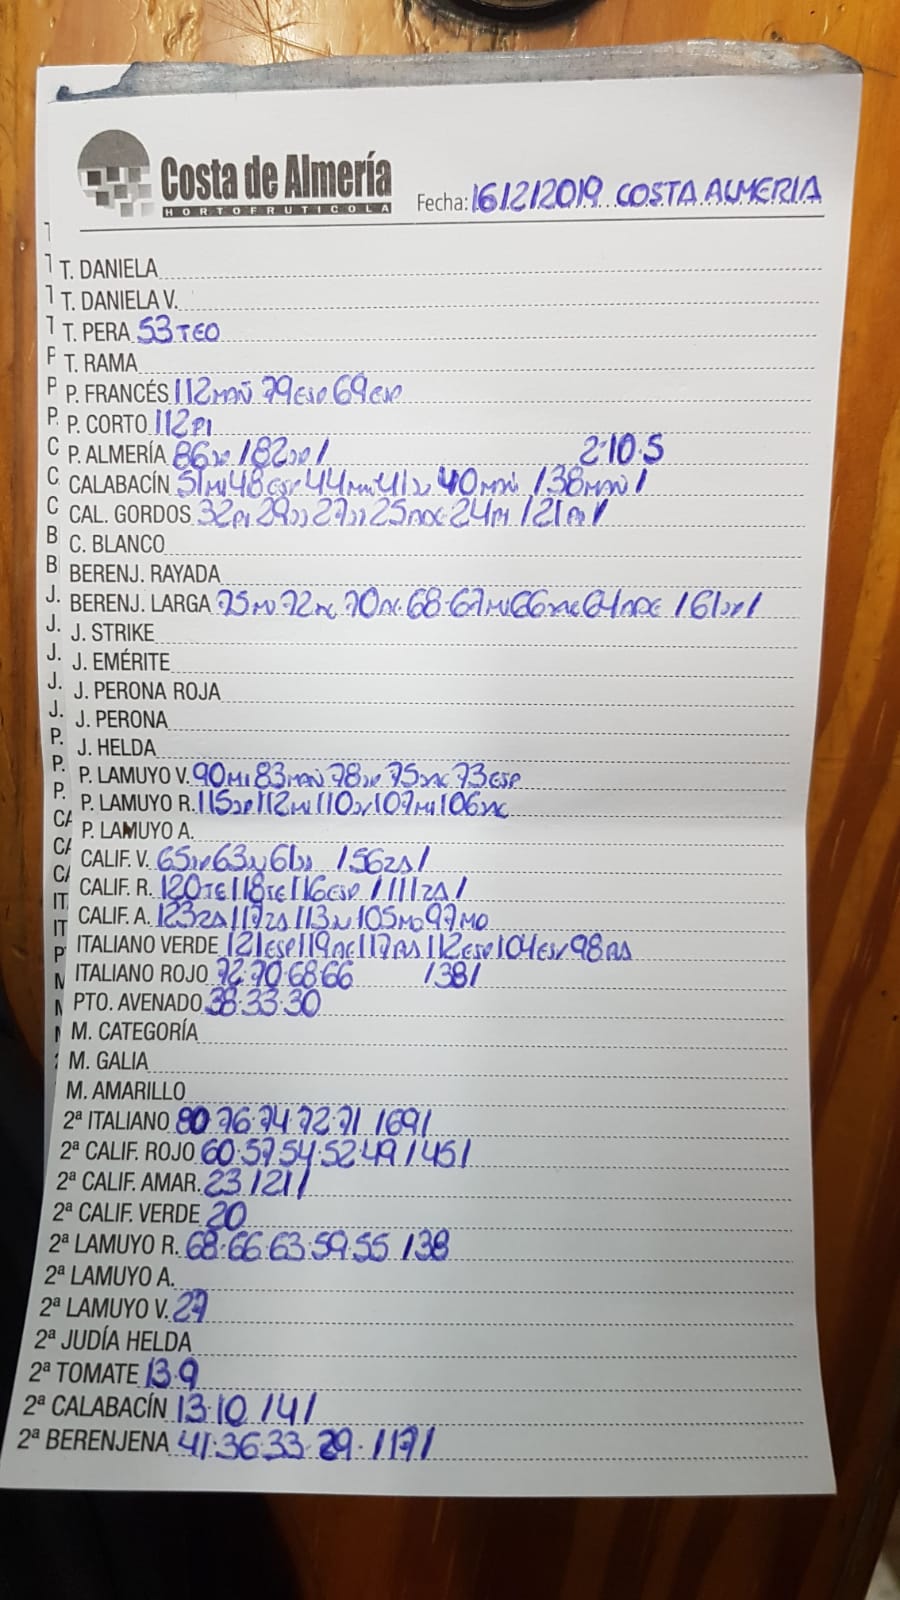 Costa de Almería
HORTOFRUTICOLA
Fecha: 16/2/2019 COSTA ALMERIA
T. DANIELA
T. DANIELA V.
T. PERA 53 TEO
T. RAMA
P. FRANCÉS 112 MAÑ 79 ESP 69 ESP
P. CORTO 112 PI
P. ALMERÍA 86 / 82 / 2·10·5
CALABACÍN 51 48 ESP 44 41 40 MAÑ / 38 MAÑ /
CAL. GORDOS 32 PI 29 27 25 24 PI / 21 PI /
C. BLANCO
BERENJ. RAYADA
BERENJ. LARGA 75 72 70 68·67 66 64 / 61 /
J. STRIKE
J. EMÉRITE
J. PERONA ROJA
J. PERONA
J. HELDA
P. LAMUYO V. 90 MI 83 MAÑ 78 75 73 ESP
P. LAMUYO R. 115 112 110 107 MI 106
P. LAMUYO A.
CALIF. V. 65 63 61 / 56 ZA /
CALIF. R. 120 TE 118 TE 116 ESP / 111 ZA /
CALIF. A. 123 ZA 117 ZA 113 105 MO 97 MO
ITALIANO VERDE 121 ESP 119 117 RA 112 ESP 104 98 RA
ITALIANO ROJO 72·70·68·66 / 38 /
PTO. AVENADO 38·33·30
M. CATEGORÍA
M. GALIA
M. AMARILLO
2ª ITALIANO 80·76·74·72·71 / 69 /
2ª CALIF. ROJO 60·57·54·52·49 / 45 /
2ª CALIF. AMAR. 23 / 21 /
2ª CALIF. VERDE 20
2ª LAMUYO R. 68·66·63·59·55 / 38
2ª LAMUYO A.
2ª LAMUYO V. 27
2ª JUDÍA HELDA
2ª TOMATE 13·9
2ª CALABACÍN 13·10 / 4 /
2ª BERENJENA 41·36·33·29· / 17 /